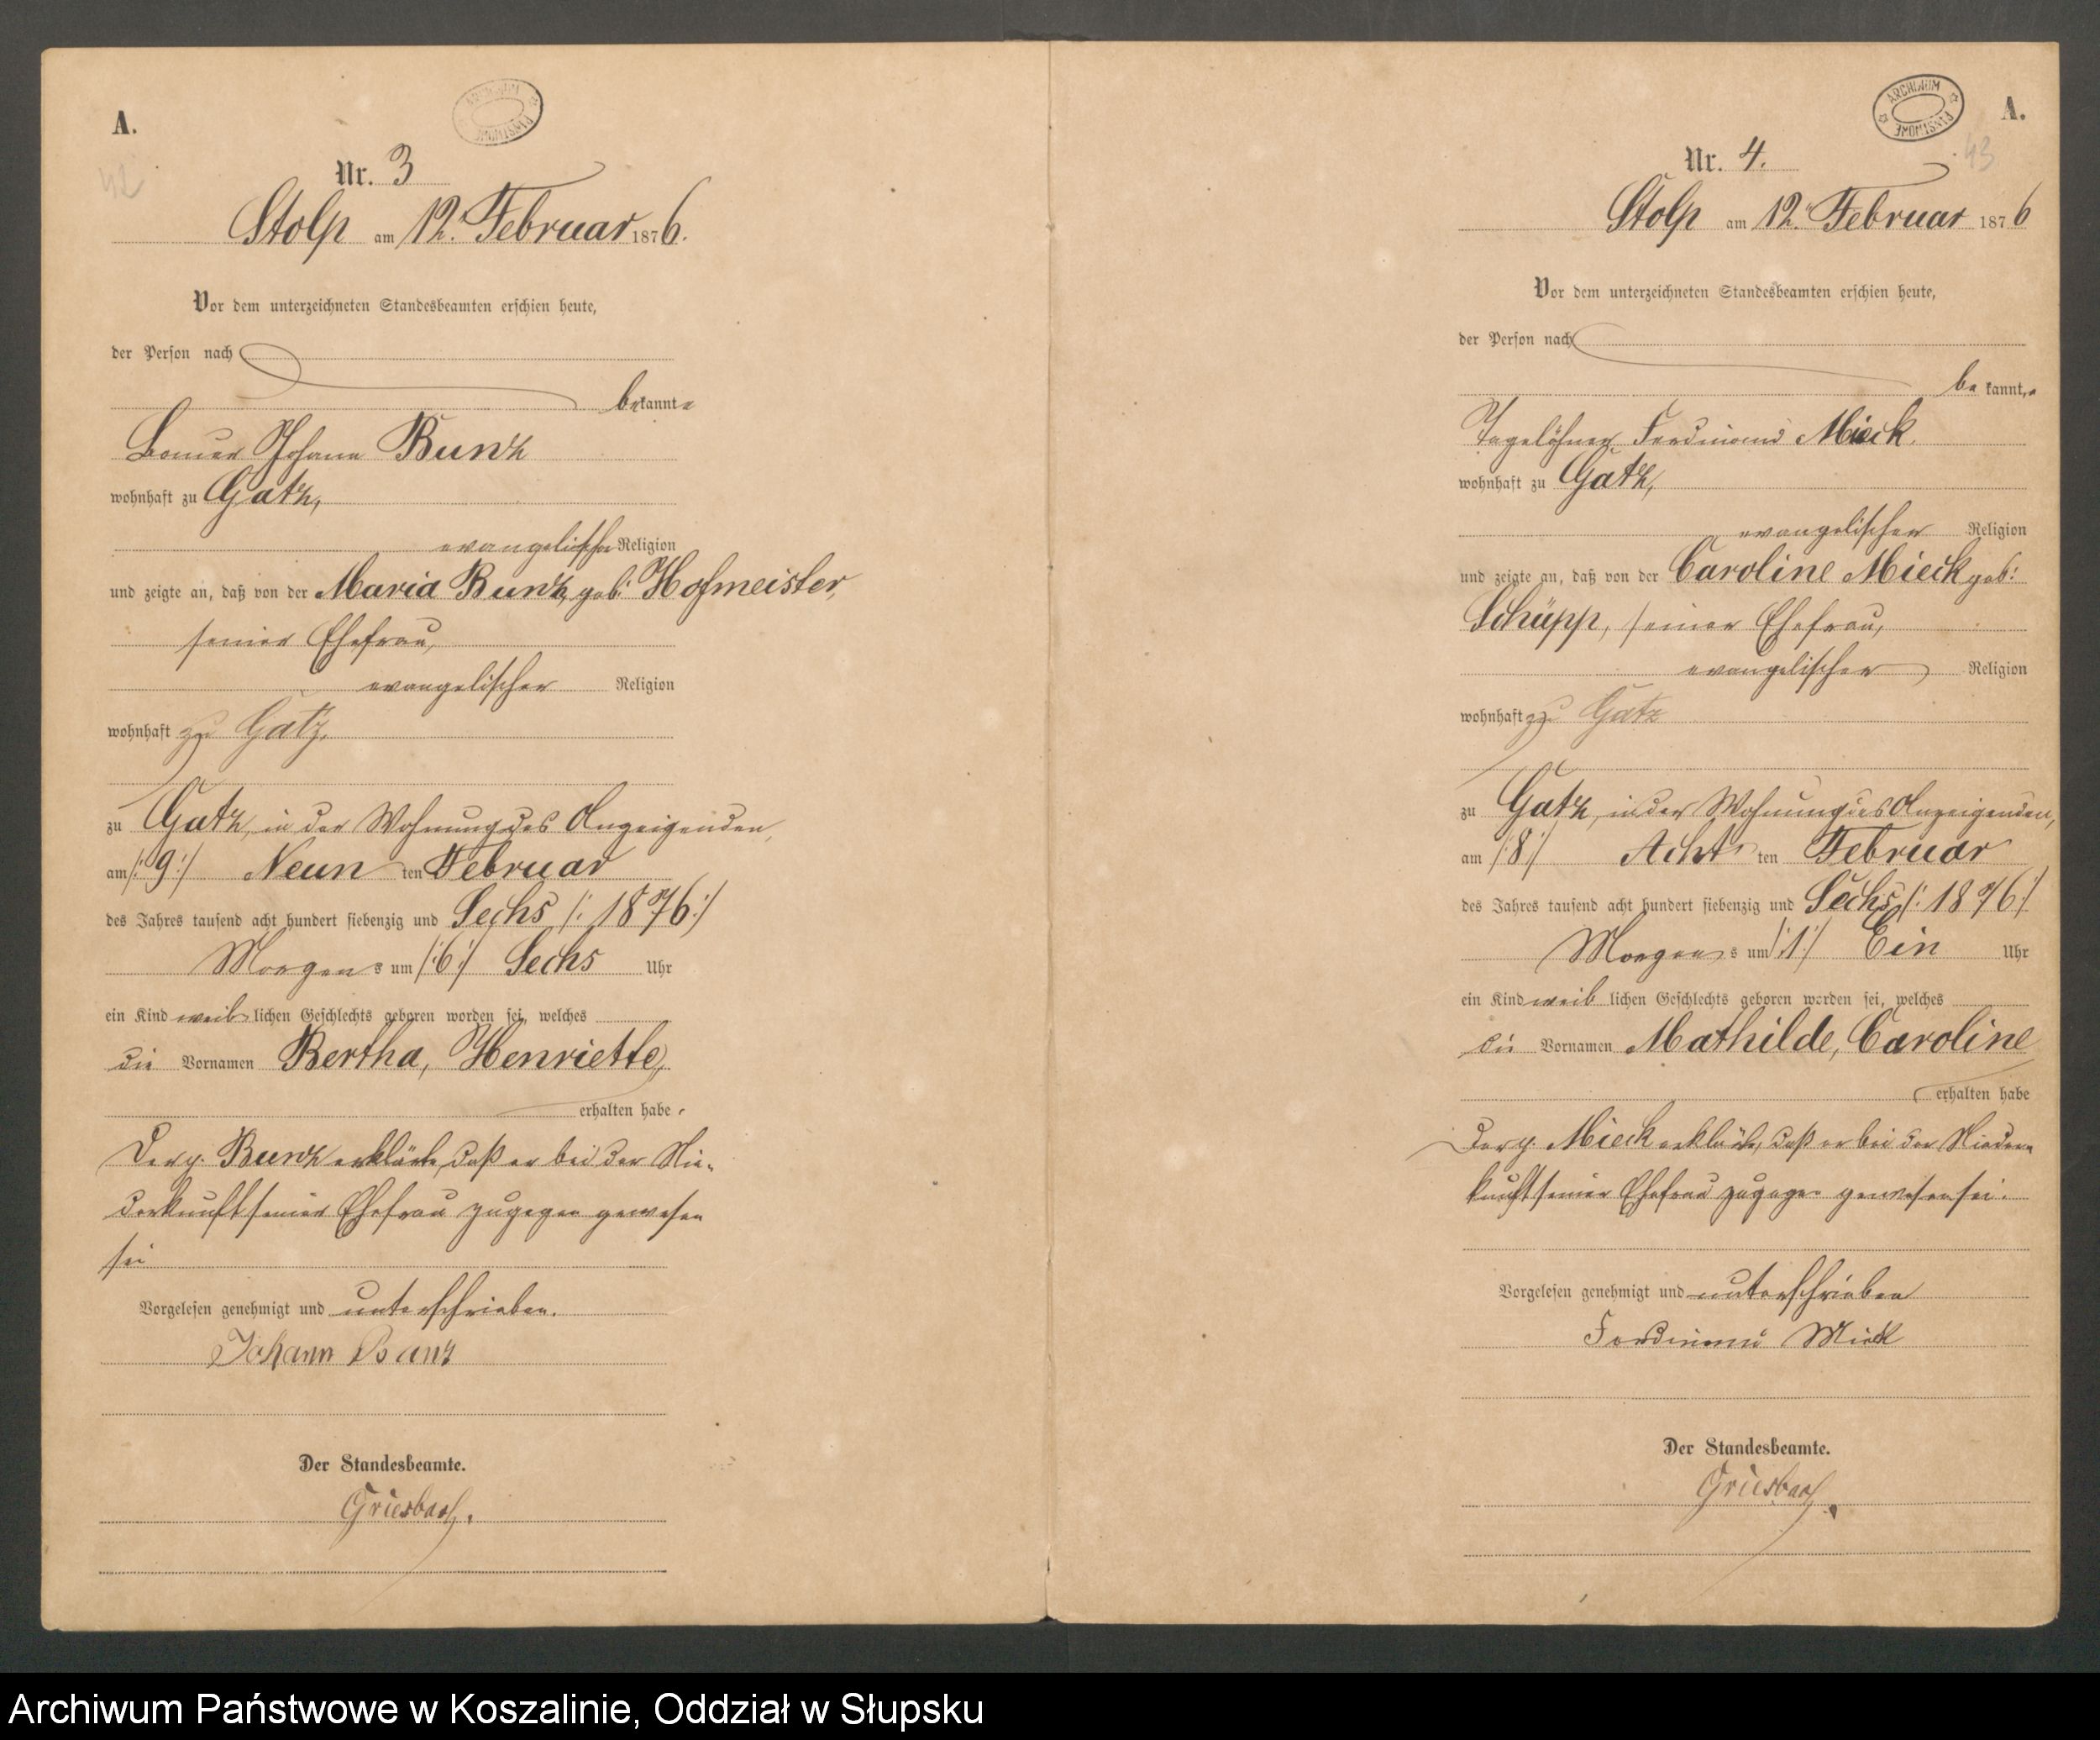 A.
ARCHIWUM PAŃSTWOWE
42
Nr. 3
Stolp am 12. Februar 1876.
Vor dem unterzeichneten Standesbeamten erschien heute,
der Person nach
bekannte
Bauer Johann Bunz
wohnhaft zu Gatz,
evangelischer Religion
und zeigte an, daß von der Maria Bunz, geb: Hofmeister,
seiner Ehefrau,
evangelischer Religion
wohnhaft zu Gatz,
zu Gatz, in der Wohnung des Anzeigenden,
am /:9:/ Neun ten Februar
des Jahres tausend acht hundert siebenzig und Sechs /:1876:/
Morgens um /:6:/ Sechs Uhr
ein Kind weiblichen Geschlechts geboren worden sei, welches
die Vornamen Bertha, Henriette,
erhalten habe.
Der p. Bunz erklärte, daß er bei der Nie-
derkunft seiner Ehefrau zugegen gewesen
sei
Vorgelesen genehmigt und unterschrieben.
Johann Bunz
Der Standesbeamte.
Griesbach.
ARCHIWUM PAŃSTWOWE
A.
43
Nr. 4.
Stolp am 12. Februar 1876
Vor dem unterzeichneten Standesbeamten erschien heute,
der Person nach
bekannte
Tagelöhner Ferdinand Mieck.
wohnhaft zu Gatz,
evangelischer Religion
und zeigte an, daß von der Caroline Mieck geb:
Schüpp, seiner Ehefrau,
evangelischer Religion
wohnhaft zu Gatz
zu Gatz, in der Wohnung des Anzeigenden,
am /:8:/ Acht ten Februar
des Jahres tausend acht hundert siebenzig und Sechs /:1876:/
Morgens um /:1:/ Ein Uhr
ein Kind weiblichen Geschlechts geboren worden sei, welches
die Vornamen Mathilde, Caroline
erhalten habe
Der p. Mieck erklärte, daß er bei der Nieder-
kunft seiner Ehefrau zugegen gewesen sei.
Vorgelesen genehmigt und unterschrieben
Ferdinand Mieck
Der Standesbeamte.
Griesbach.
Archiwum Państwowe w Koszalinie, Oddział w Słupsku